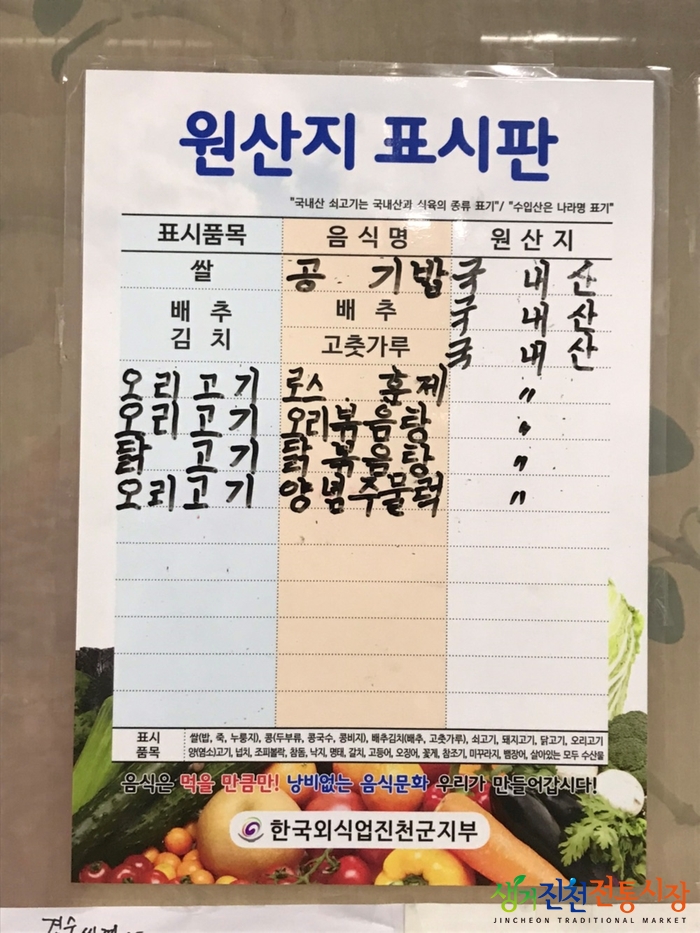 원산지 표시판
"국내산 쇠고기는 국내산과 식육의 종류 표기"/ "수입산은 나라명 표기"
표시품목 음식명 원산지
쌀 공기밥 국내산
배추김치 배추 국내산
고춧가루 국내산
오리고기 로스. 훈제 〃
오리고기 오리볶음탕 〃
닭고기 닭볶음탕 〃
오리고기 양념주물럭 〃
표시품목 쌀(밥, 죽, 누룽지), 콩(두부류, 콩국수, 콩비지), 배추김치(배추, 고춧가루), 쇠고기, 돼지고기, 닭고기, 오리고기
양(염소)고기, 넙치, 조피볼락, 참돔, 낙지, 명태, 갈치, 고등어, 오징어, 꽃게, 참조기, 미꾸라지, 뱀장어, 살아있는 모두 수산물
음식은 먹을 만큼만! 낭비없는 음식문화 우리가 만들어갑시다!
한국외식업진천군지부
생거진천전통시장
JINCHEON TRADITIONAL MARKET